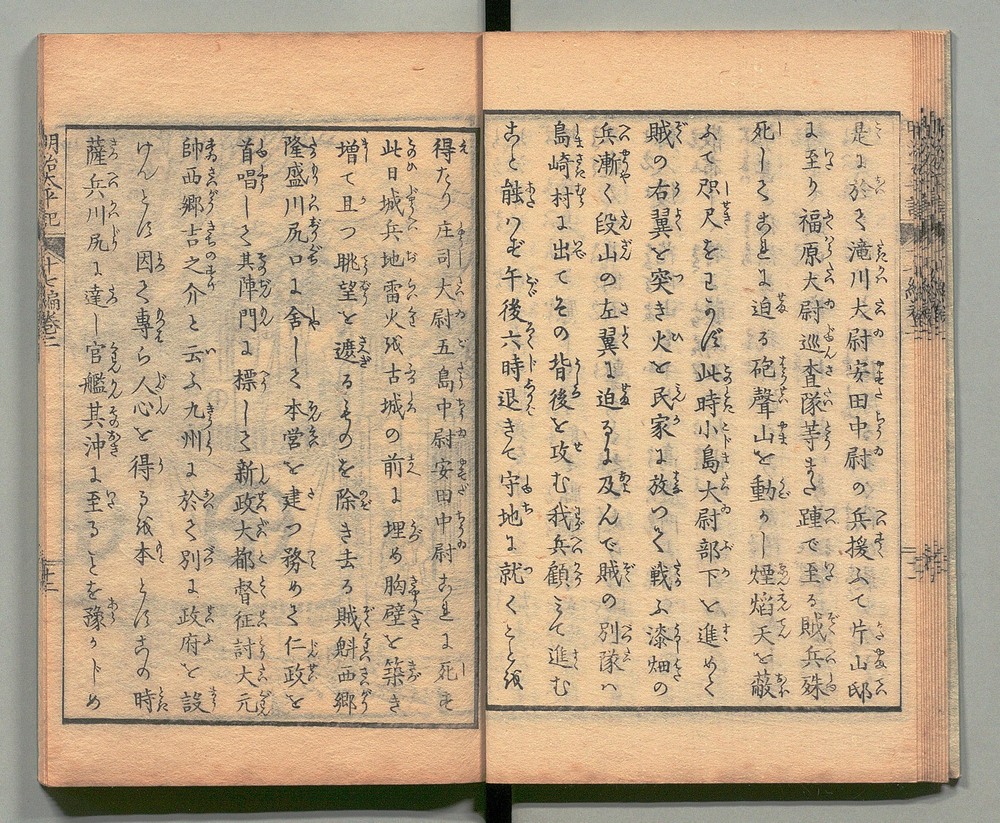 是に於て滝川大尉安田中尉の兵援ふて片山邸
に至り福原大尉巡査隊等また踵で至る賊兵殊
死してこれに迫る砲聲山を動かし煙焔天を蔽
ふて咫尺をわかたず此時小島大尉部下を進めて
賊の右翼を突き火を民家に放つて戦ふ漆畑の
兵漸く段山の左翼に迫るに及んで賊の別隊ハ
島崎村に出てその背後を攻む我兵顧ミて進む
こと能ハず午後六時退きて守地に就くことを
得たり庄司大尉五島中尉安田中尉これに死す
此日城兵地雷火を古城の前に埋め胸壁を築き
増て且つ眺望を遮るものを除き去る賊魁西郷
隆盛川尻口に舎して本営を建つ務めて仁政を
首唱して其陣門に標して新政大都督征討大元
帥西郷吉之介と云ふ九州に於て別に政府を設
けんとす因て専ら人心を得るを本とす この時
薩兵川尻に達し官艦其沖に至ることを豫かじめ
明治太平記 十七編巻二 十二